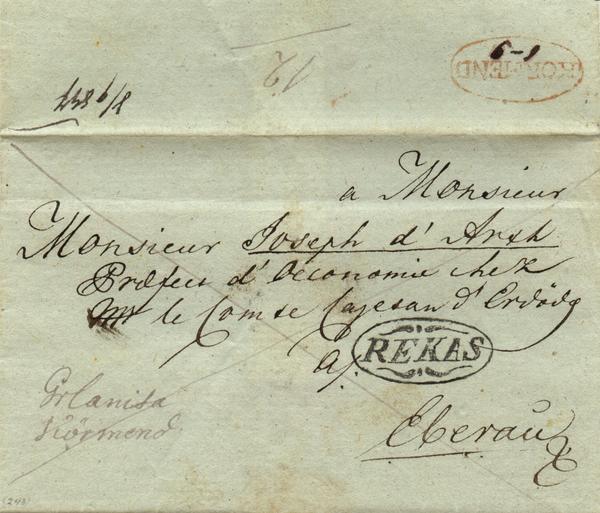 KÖRMEND
6-1
12
8/9 847
a Monsieur
Monsieur Joseph d' Arth
Præfect d' Oéconomie chez
le Comte Cajetan d' Erdödÿ
a/.
REKAS
Eberau
Grlanisa
Körmend
(248)